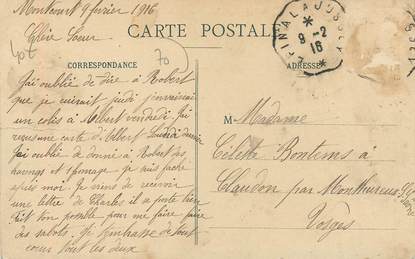 Montcourt 9 février 1916
Chère Sœur
J'ai oublié de dire à Robert
que je cuirait jeudi j'envairai
un colis à Albert vendredi. J'ai
reçus une carte d'Albert Lundi dernier
J'ai oublié de donné à Robert pas
harengs et 1 fromage je suis faché
après moi. Je viens de recevoir
une lettre de Charles il se porte bien
fait ton possible pour me faire faire
des sabots. Je t'embrasse de tout
cœur tout les deux
CARTE POSTALE
CORRESPONDANCE
70
ADRESSE
9-2
16
M- Madame
Bontems à
Claudon par Monthureux s/ Saône
Vosges